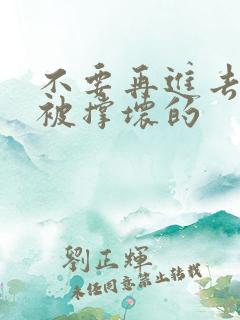 不要再進去
被撐壞的
劉正輝
未经同意禁止转载